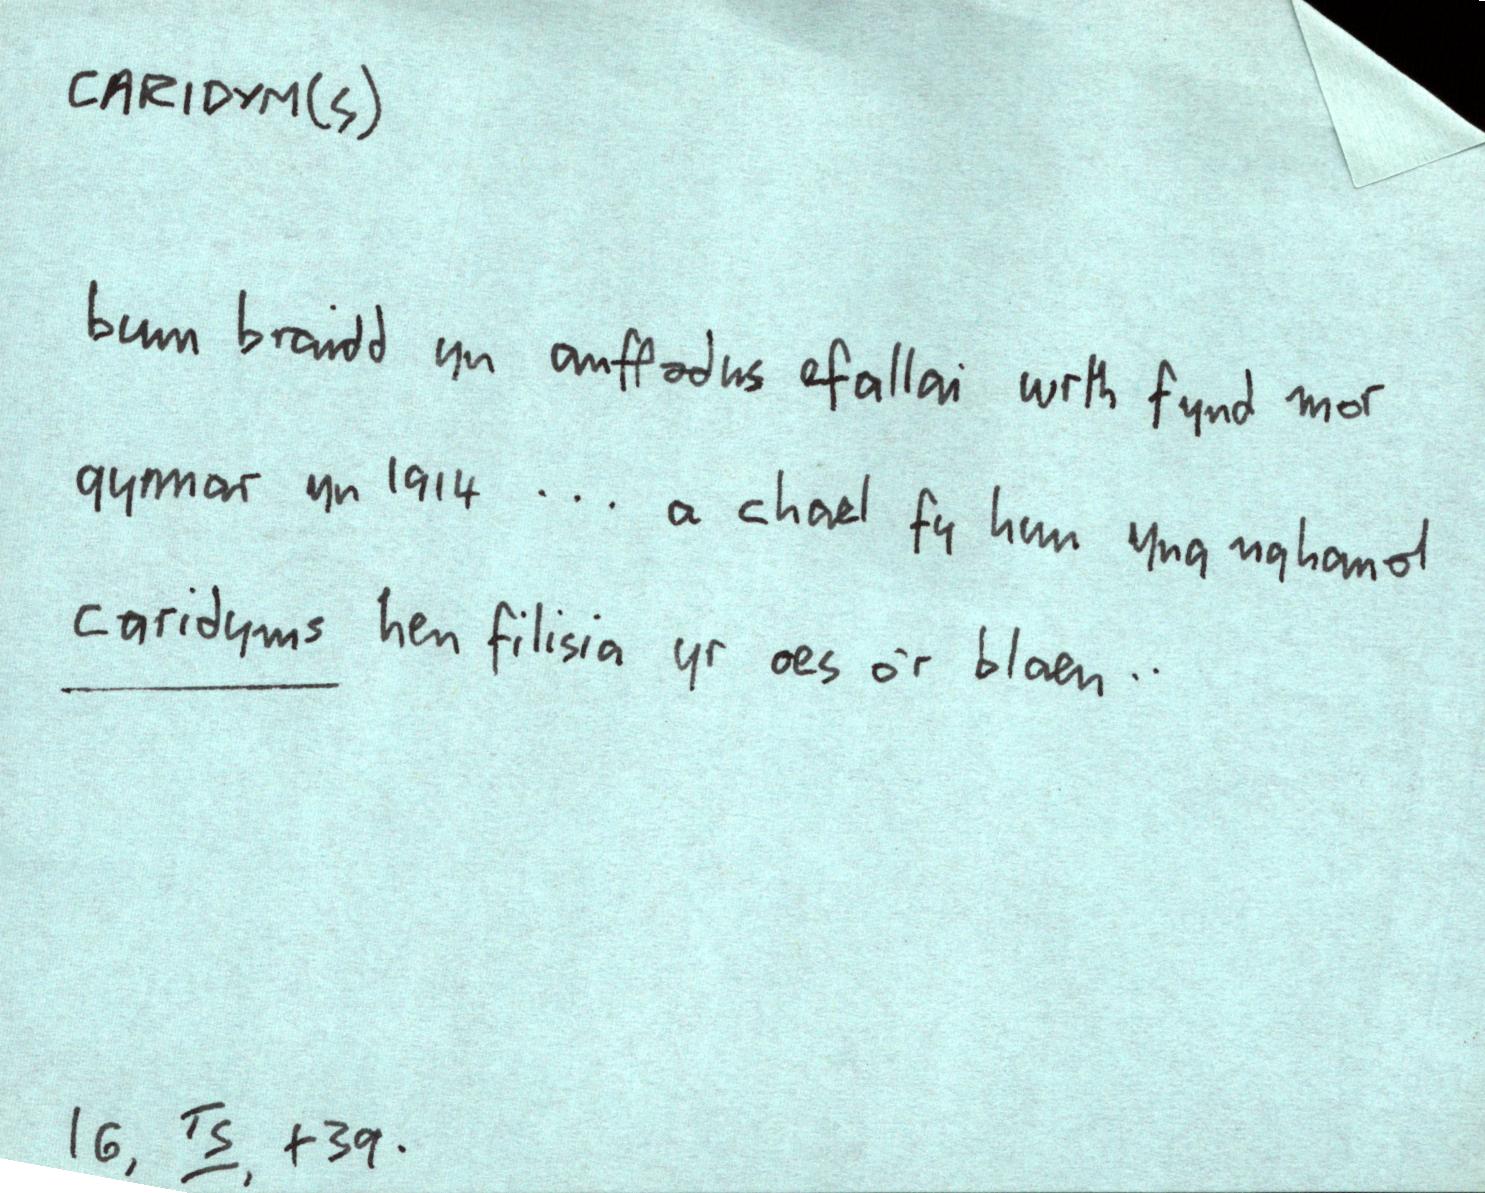 CARIDYM(S)
bum braidd yn anffodus efallai wrth fynd mor
gynnar yn 1914 ... a chael fy hun yng nghanol
caridyms hen filisia yr oes o'r blaen..
IG, TS, t39.